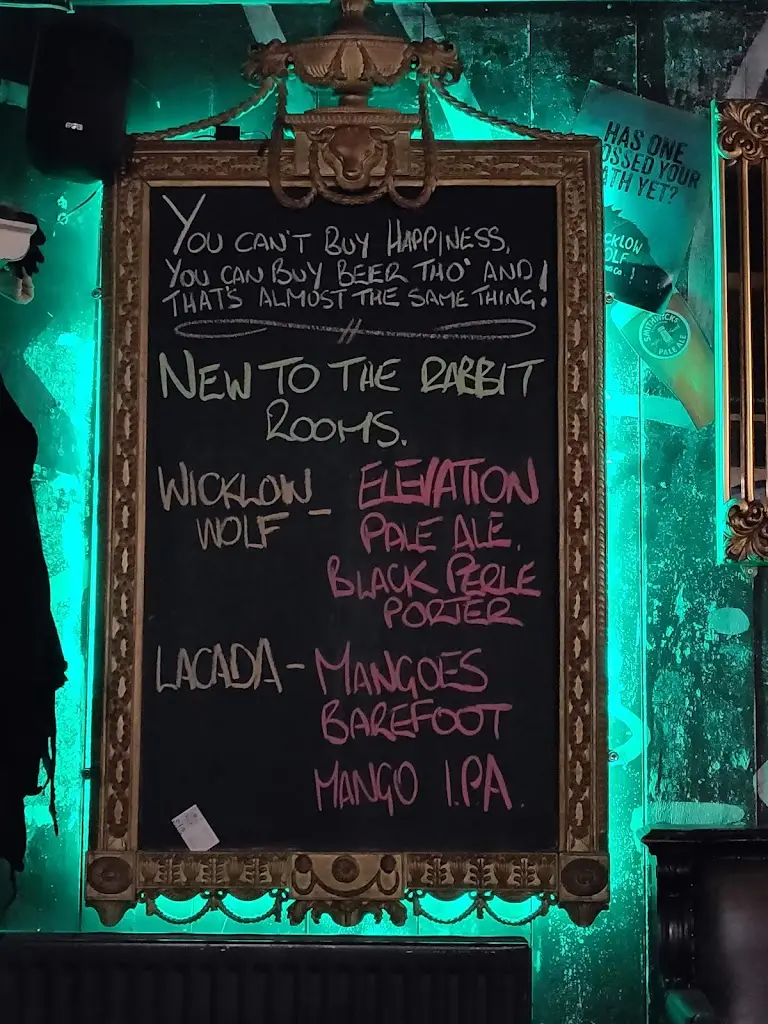 YOU CAN'T BUY HAPPINESS,
YOU CAN BUY BEER THO' AND
THAT'S ALMOST THE SAME THING!
NEW TO THE RABBIT
ROOMS.
WICKLOW
WOLF -
ELEVATION
PALE ALE.
BLACK PERLE
PORTER
LACADA - MANGOES
BAREFOOT
MANGO I.P.A.
HAS ONE
OSSED YOUR
ATH YET?
CKLOW
OLF
SMITHWICK'S
PALE ALE